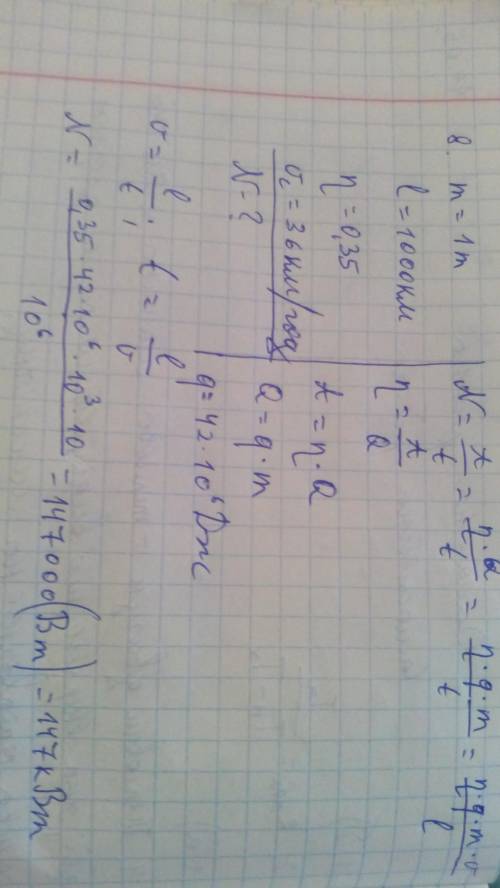 8. m = 1т
l = 1000км
η = 0,35
v₍c₎ = 36км/год
N - ?
N = A/t = η·Q/t = η·q·m/t = η·q·m·v/l
η = A/Q
A = η·Q
Q = q·m
q = 42·10⁶ Дж
v = l/t; t = l/v
N = 0,35·42·10⁶·10³·10/10⁶ = 147000(Вт) = 147кВт